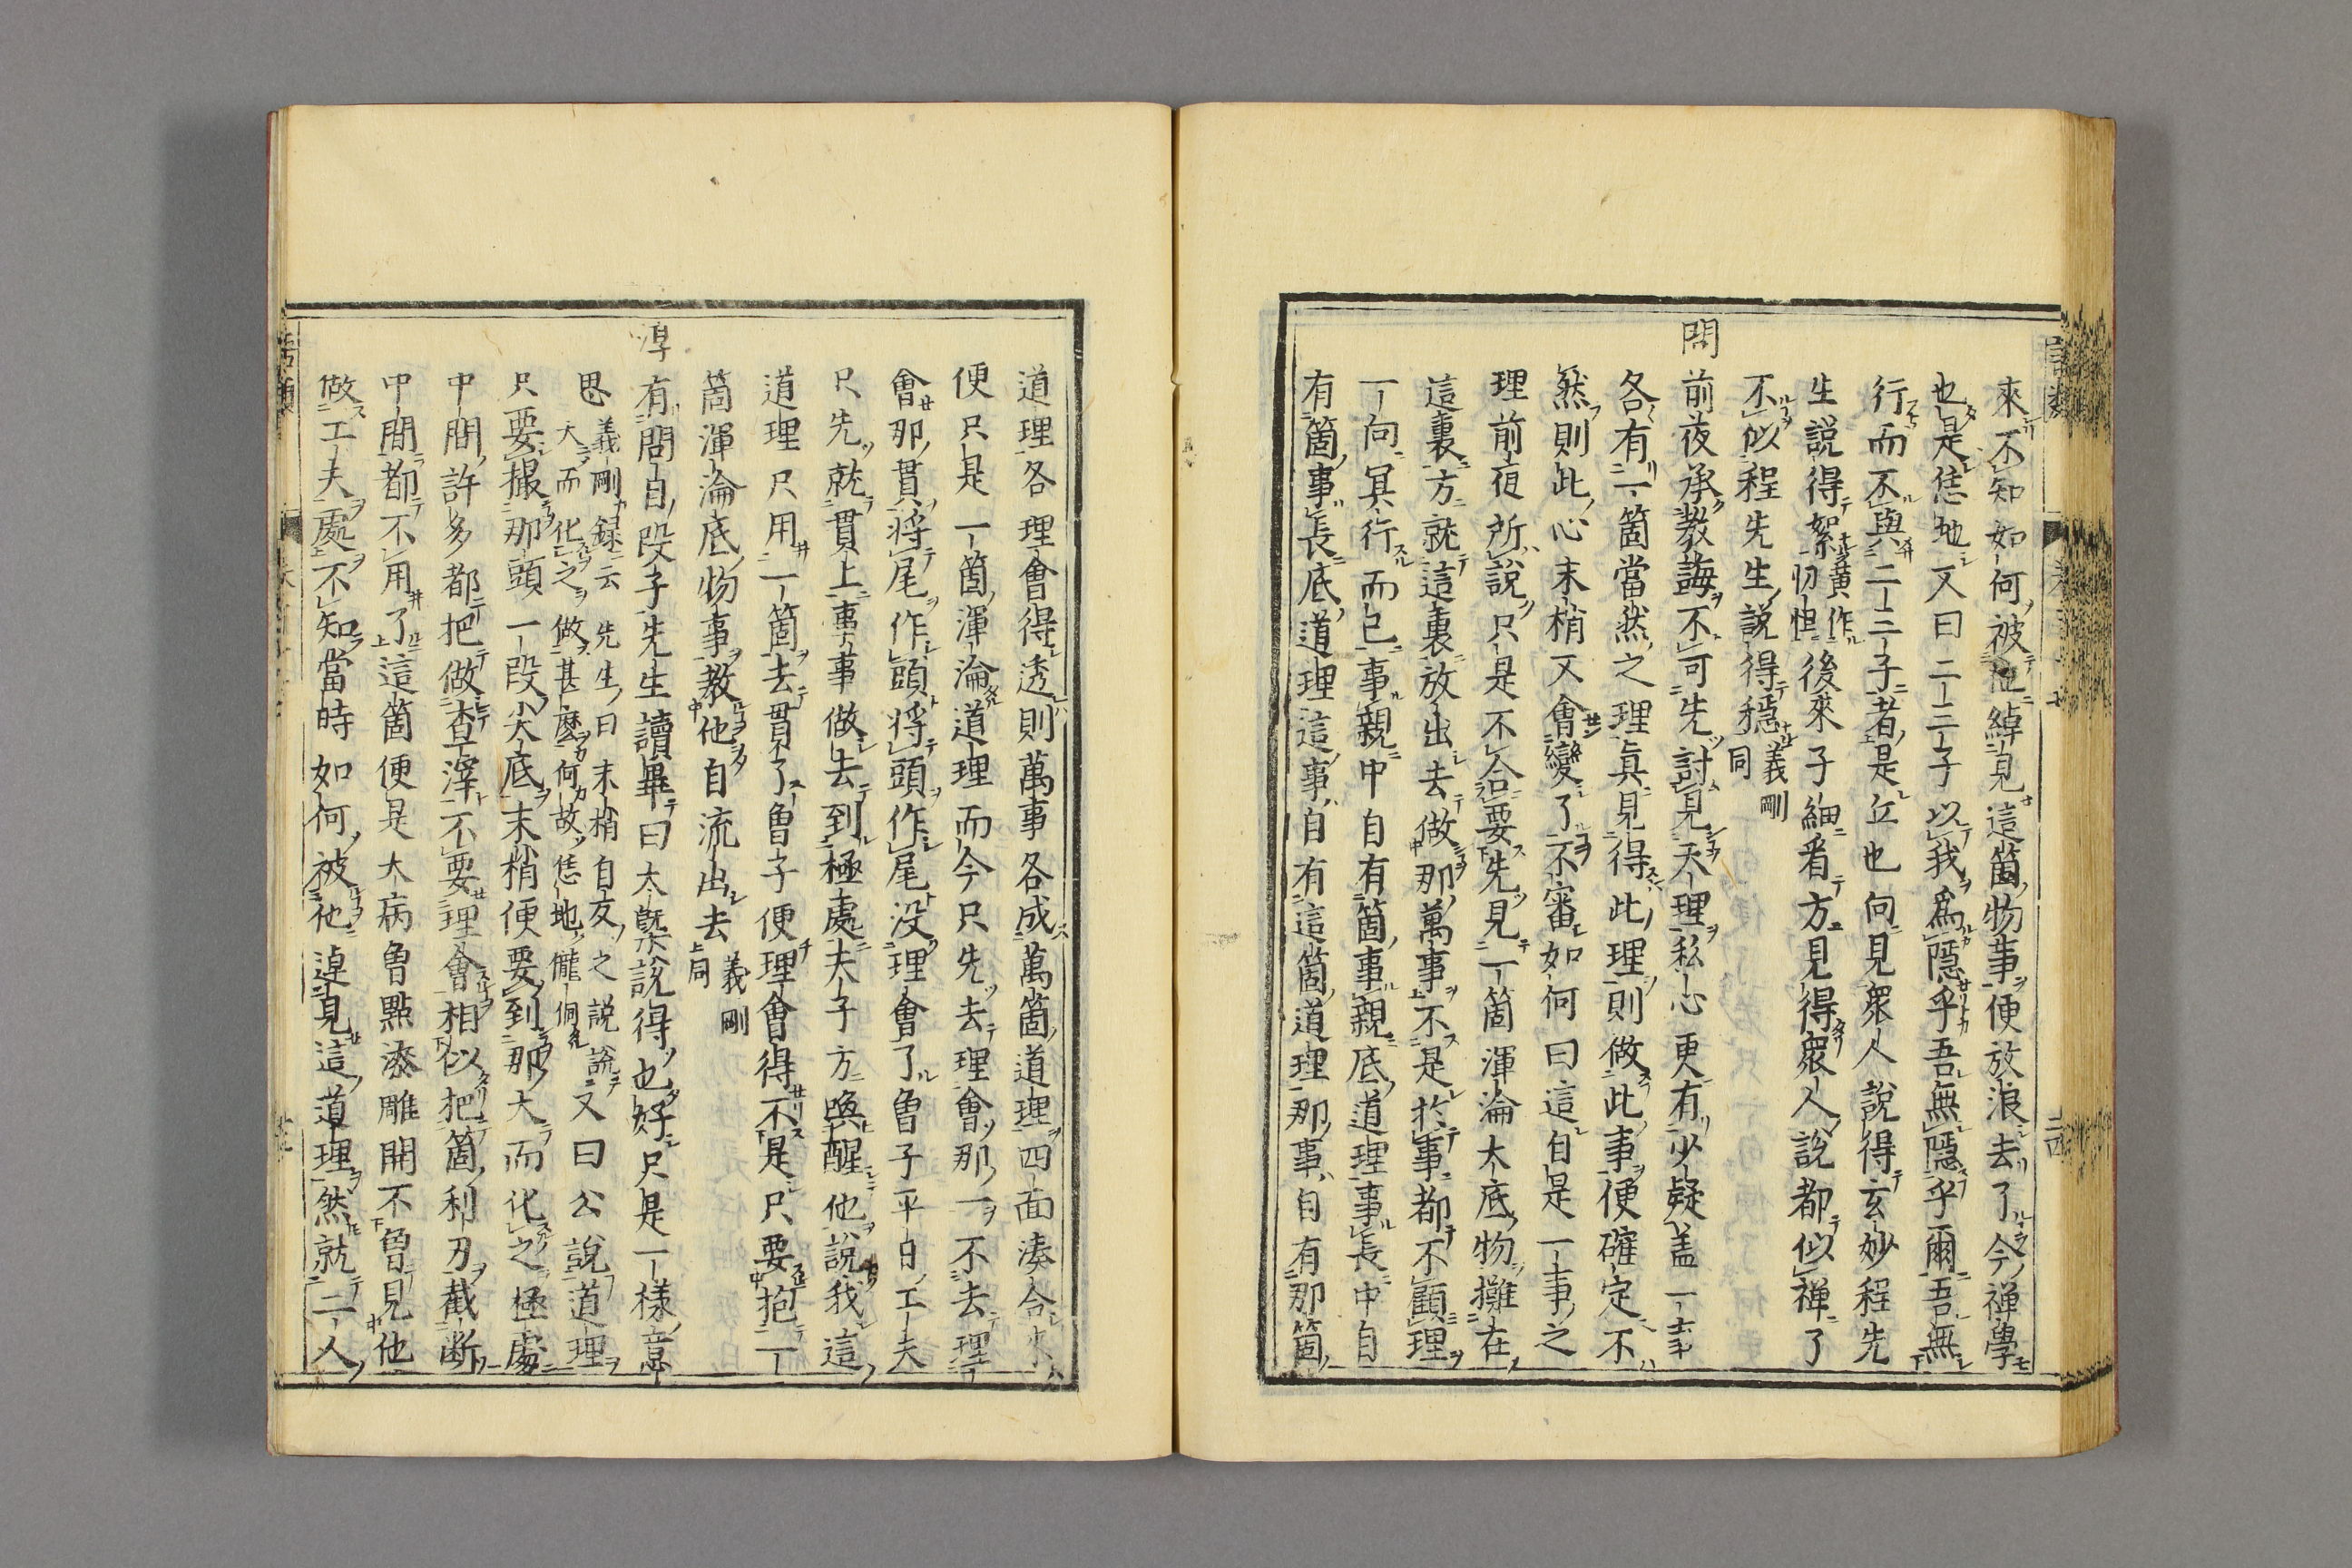 來不知如何被他綽見這箇物事便放浪去了今禪學
也是恁地又曰二三子以我爲隱乎吾無隱乎爾吾無
行而不與二三子者是丘也向見衆人說得玄妙程先
生說得絮黃作忉怛後來子細看方見得衆人說都似禪了
不似程先生說得穩義剛同
問
前夜承教誨不可先討見天理私心更有少疑盖一事
各有一箇當然之理真見得此理則做此事便確定不
然則此心末梢又會變了不審如何曰這自是一事之
理前夜所說只是不合要先見一箇渾淪大底物攤在
這裏方就這裏放出去做那萬事不是於事都不顧理
一向冥行而已事親中自有箇事親底道理事長中自
有箇事長底道理這事自有這箇道理那事自有那箇
道理各理會得透則萬事各成萬箇道理四面湊合來
便只是一箇渾淪道理而今只先去理會那一不去理
會那貫將尾作頭將頭作尾没理會了曾子平日工夫
只先就貫上事事做去到極處夫子方喚醒他說我這
道理只用一箇去貫了曾子便理會得不是只要抱一
箇渾淪底物事教他自流出去義剛上同
淳
有問目段子先生讀畢曰大槩說得也好只是一樣意
思義剛録云先生曰末梢自友之說說大而化之做甚麼何故恁地儱侗又曰公說道理
只要撮那頭一段尖底末梢便要到那大而化之極處
中間許多都把做查滓不要理會相似把箇利刃截斷
中間都不用了這箇便是大病曾點漆雕開不曾見他
做工夫處不知當時如何被他逴見這道理然就二人